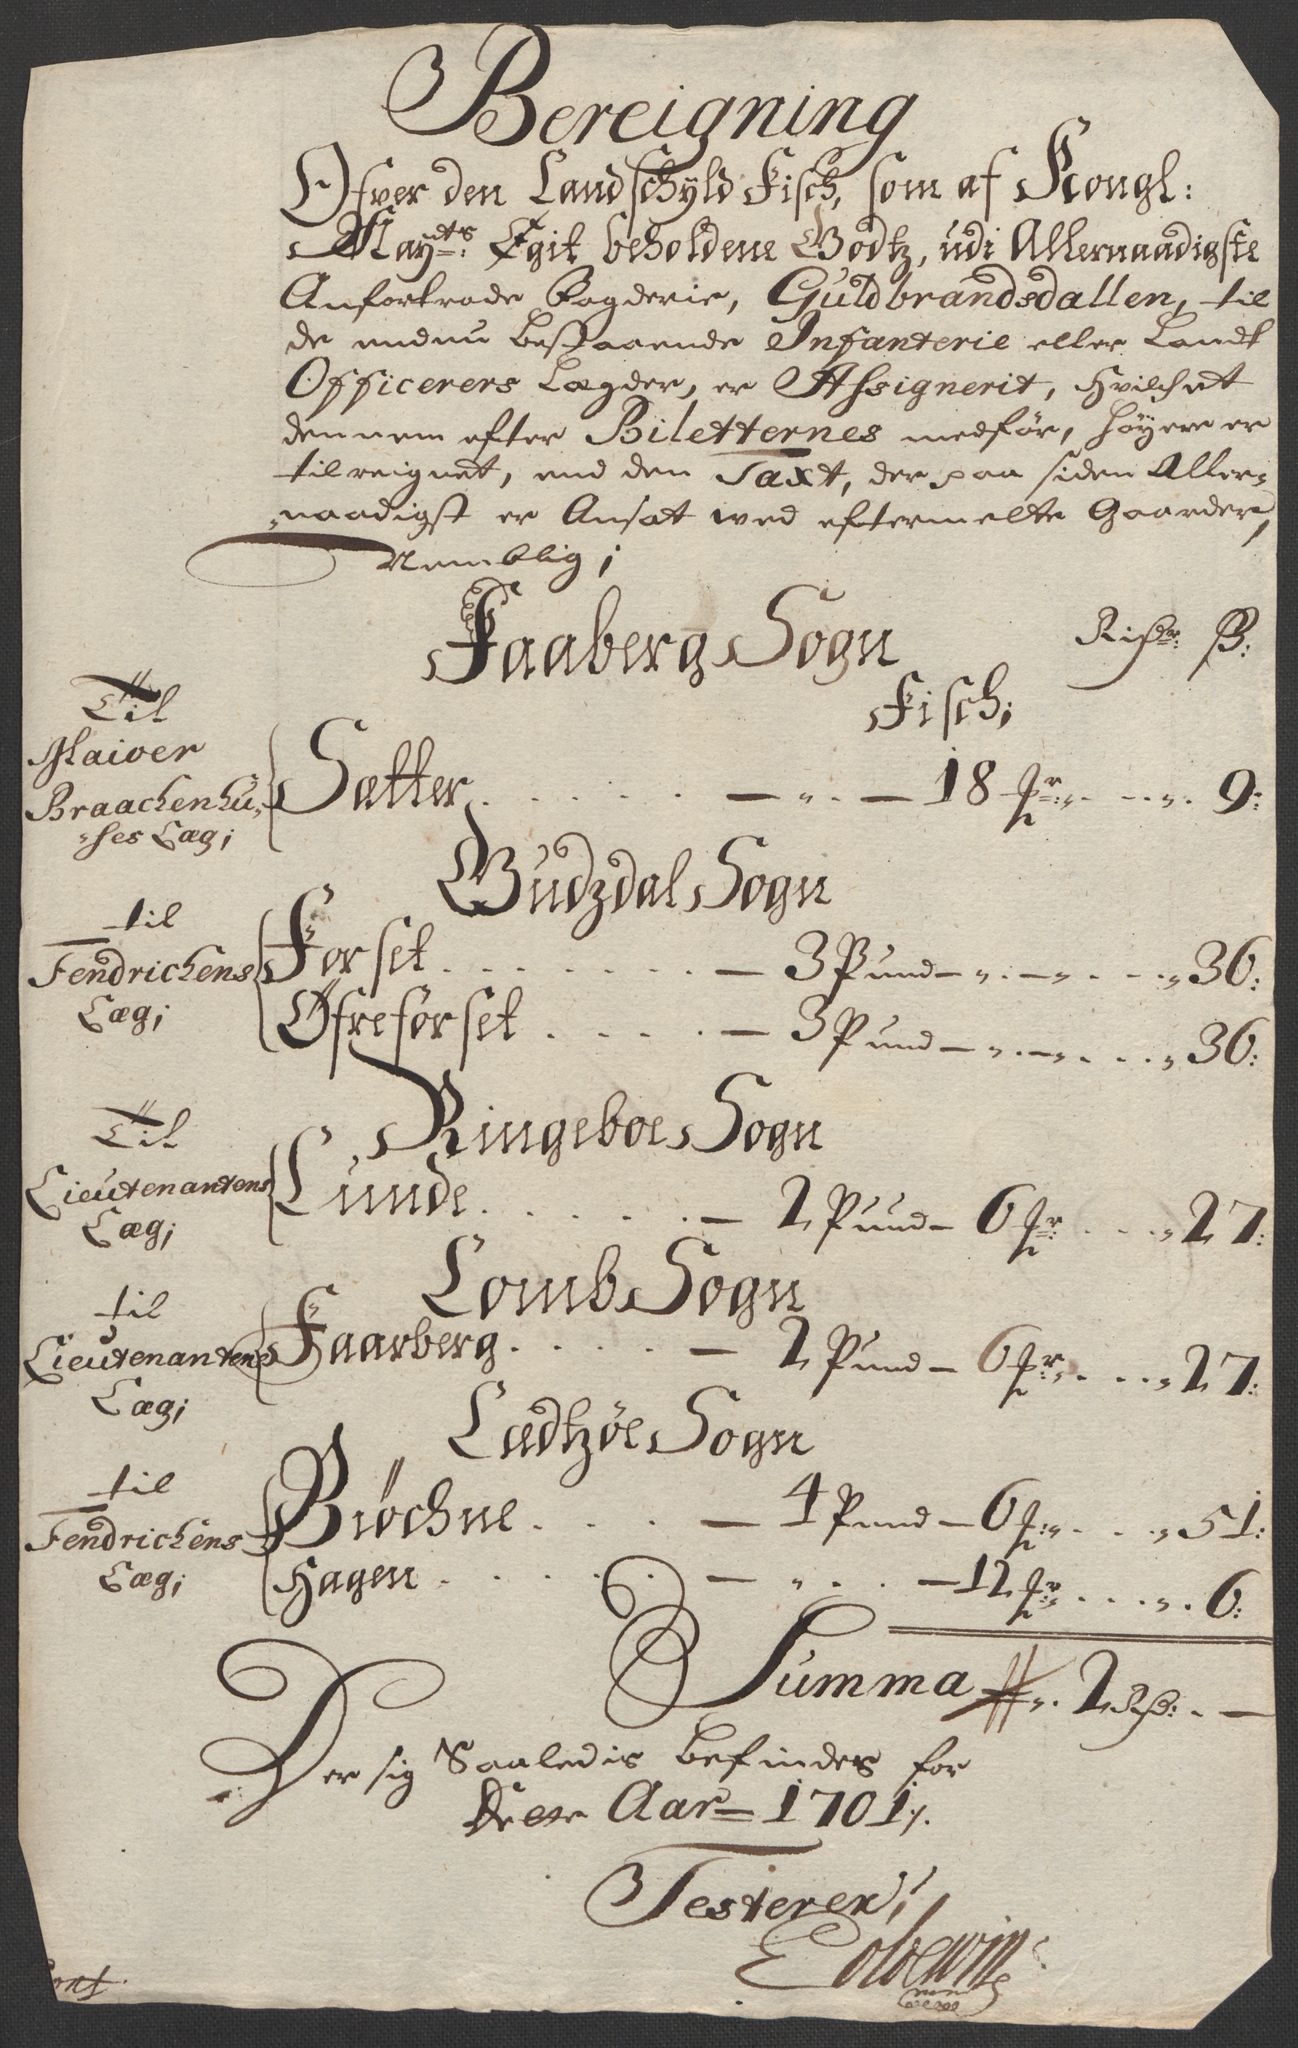 Bereigning
Ofver den Landschyld Fisch, som af Kongl:
Mayts: Egit beholdene Godtz, udi Allernaadigste
Anfortrode Fogderie, Guldbrandsdallen, til
de endnu bestaaende Infanterie eller Landt
Officerers Lægder, er Assignerit, hvilchet
dennem efter Biletternes medför, høyere er
tilreignet, end den Taxt, der paa siden Aller-
naadigst er Ansat wed eftermelte Gaarder,
Nemblig;
Faaberg Sogn
Rixdr: ß:
Fisch;
Til
Maior
Braachenhu-
ses Læg;
Sætter . . . . . — „ . — 18 mr: „ . . . „ . 9:
Gudzdal Sogn
til
Fendrichens
Læg;
Forset . . . . . . — 3 Pund — „ . — „ . . . „ 36:
Øfreforset . . . . — 3 Pund — „ . — „ . . . „ 36:
Ringeboe Sogn
Til
Lieutenantens
Læg;
Lunde . . . . . — 2 Pund — 6 mr . . . „ 27:
Lomb Sogn
til
Lieutenantens
Læg;
Faarberg . . . . — 2 Pund — 6 mr: „ . . . „ 27:
Ladtzøe Sogn
til
Fendrichens
Læg;
Biöchne . . . — 4 Pund — 6 mr: „ . . . „ 51:
Hagen . . . . . — „ . . — 12 mr: „ . . . „ . 6:
Summa „ . 2 Rd: . —
Der sig Saaledis befindes for
Dette Aar — 1701 ;.
Testerer;